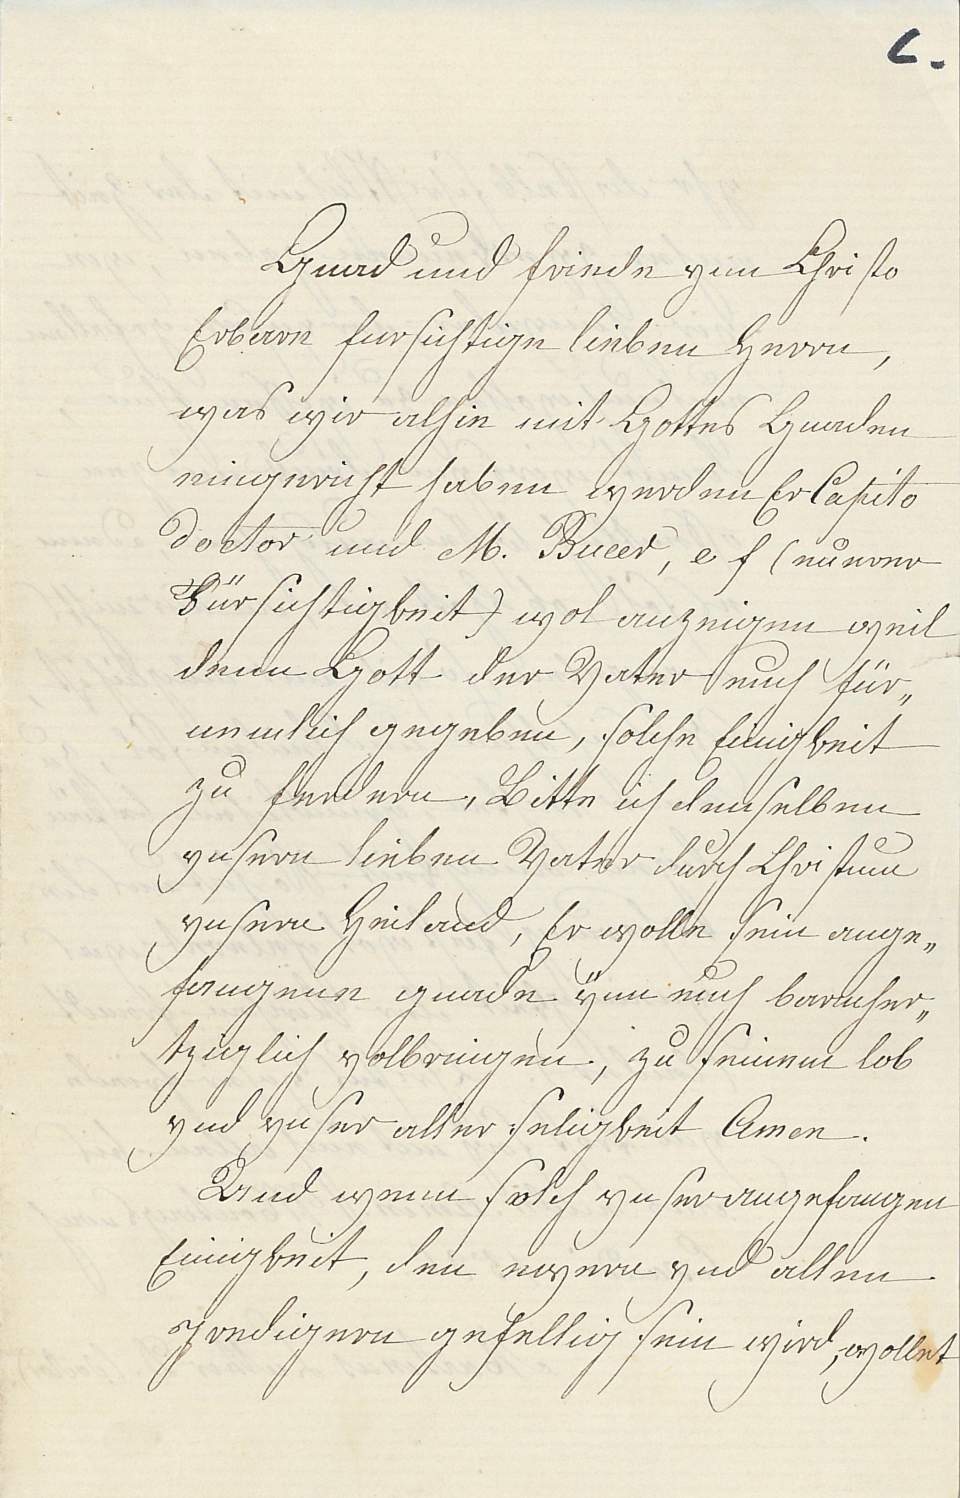 C.
Gnad und friede ynn Christo
Erbarn fursichtige lieben Herrn,
was wir alhie mit Gottes Gnaden
eingericht haben werden Er Capito
doctor und M. Bucer, e f (eüerer
Fürsichtigkeit) wol anzeigen weil
denn Gott der Vater euch für„
nemlich gegeben, solche Einigkeit
zu foddern, Bitte ich denselben
vnsern lieben Vater durch Christum
vnsern Heiland, Er wolle sein ange„
fangene gnade ynn euch barmher„
tziglich volbringen, zu seinem lob
vnd vnser aller seligkeit Amen.
Und wenn solch vnser angefangen
Einigkeit, den ewern vnd allen
predigern gefellig sein wird, wollet